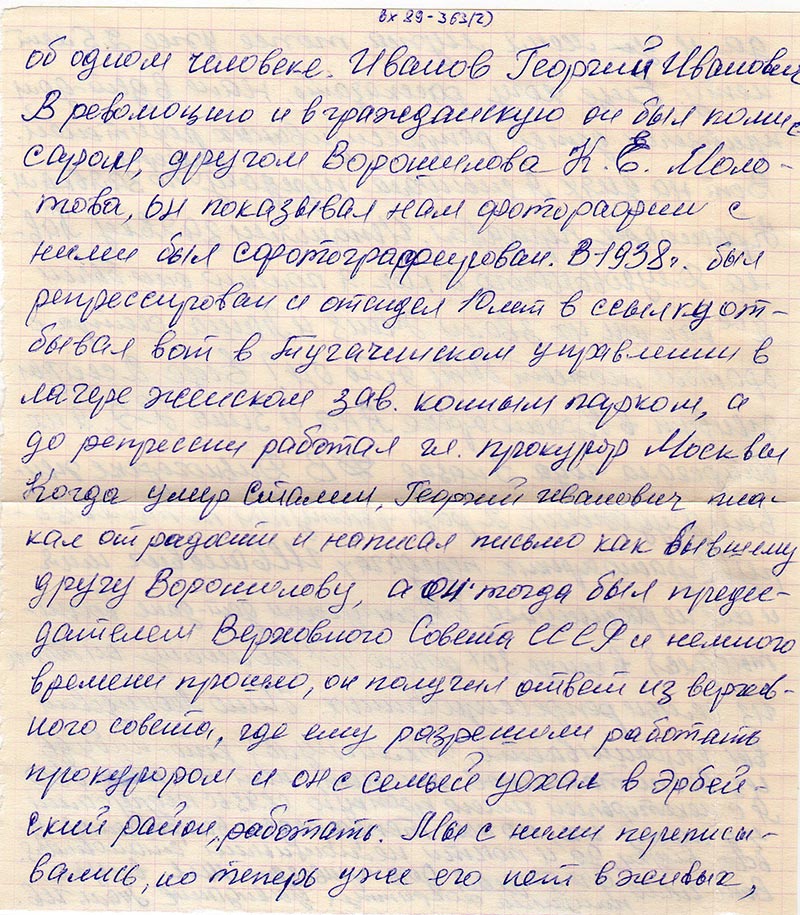 вх 89-363(2)
об одном человеке. Иванов Георгий Иванович
В революцию и в гражданскую он был комис
саром, другом Ворошилова К. Е. Моло-
това, он показывал нам фотографии с
ними был сфотографирован. В-1938г. был
репрессирован и отсидел 10 лет в ссылку от-
бывал вот в Тугачинском управлении в
лагере женском зав. конным парком, а
до репрессии работал гл. прокурор Москвы
Когда умер Сталин, Георгий Иванович пла-
кал от радости и написал письмо как бывшему
другу Ворошилову, а он тогда был предсе-
дателем Верховного Совета СССР и немного
времени прошло, он получил ответ из верхов-
ного совета, где ему разрешили работать
прокурором и он с семьей уехал в Ирбей-
ский район, работать. Мы с ними переписы-
вались, но теперь уже его нет в живых,